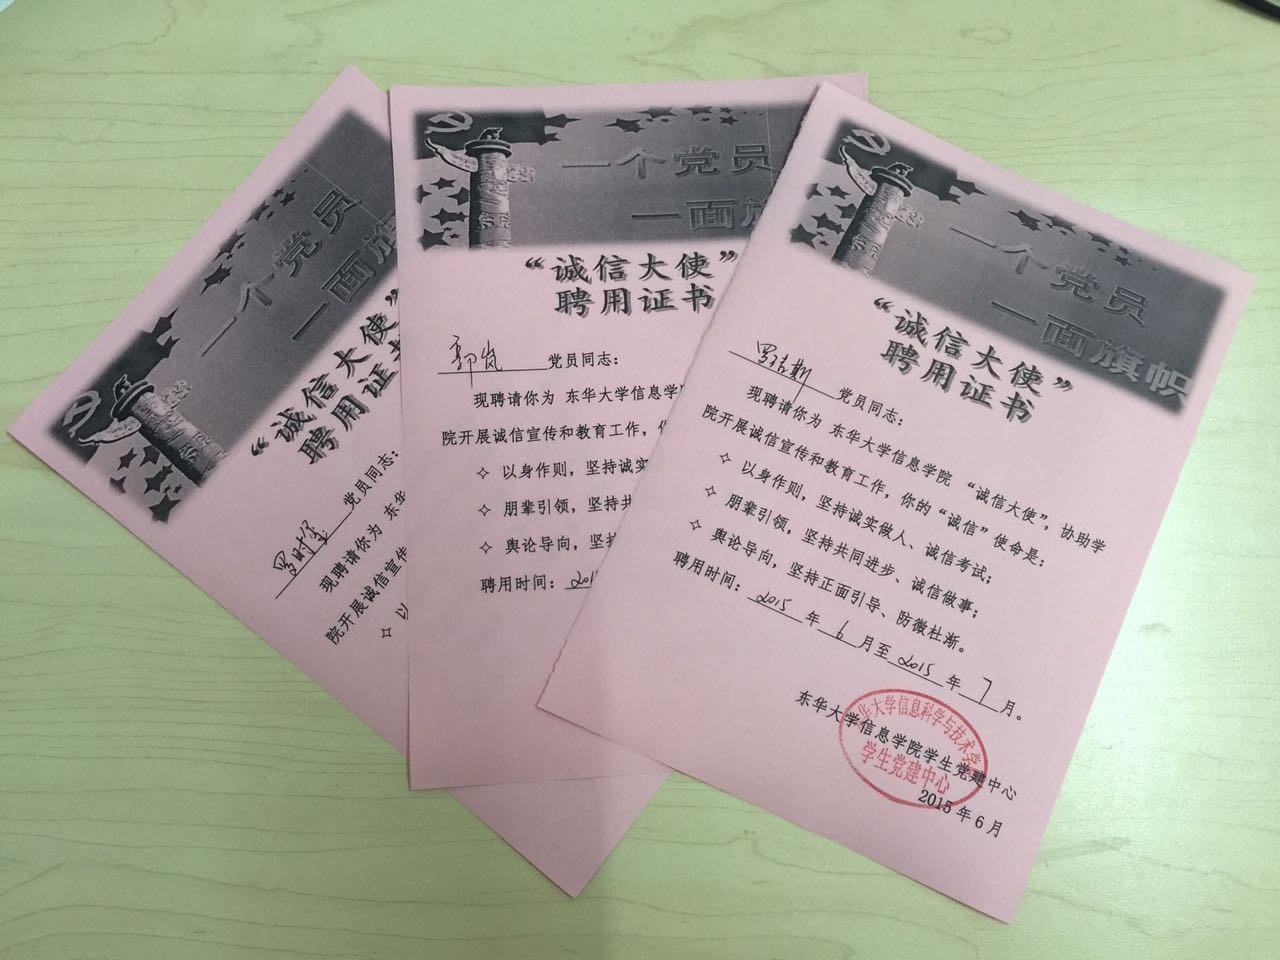 一个党员
一面旗
“诚信大使”
聘用证书
罗时 党员同志：
现聘请你为 东华
院开展诚信宣传
✧ 以
一个党员
一面旗
“诚信大使”
聘用证书
郭岚 党员同志：
现聘请你为 东华大学信息学院
院开展诚信宣传和教育工作，
✧ 以身作则，坚持诚实
✧ 朋辈引领，坚持共
✧ 舆论导向，坚持
聘用时间：201
一个党员
一面旗帜
“诚信大使”
聘用证书
罗 党员同志：
现聘请你为 东华大学信息学院 “诚信大使”，协助学
院开展诚信宣传和教育工作，你的“诚信”使命是：
✧ 以身作则，坚持诚实做人、诚信考试；
✧ 朋辈引领，坚持共同进步、诚信做事；
✧ 舆论导向，坚持正面引导、防微杜渐。
聘用时间：2015年6月至2015年7月。
东华大学信息学院学生党建中心
2015年6月
华大学信息科学与技术学
学生党建中心